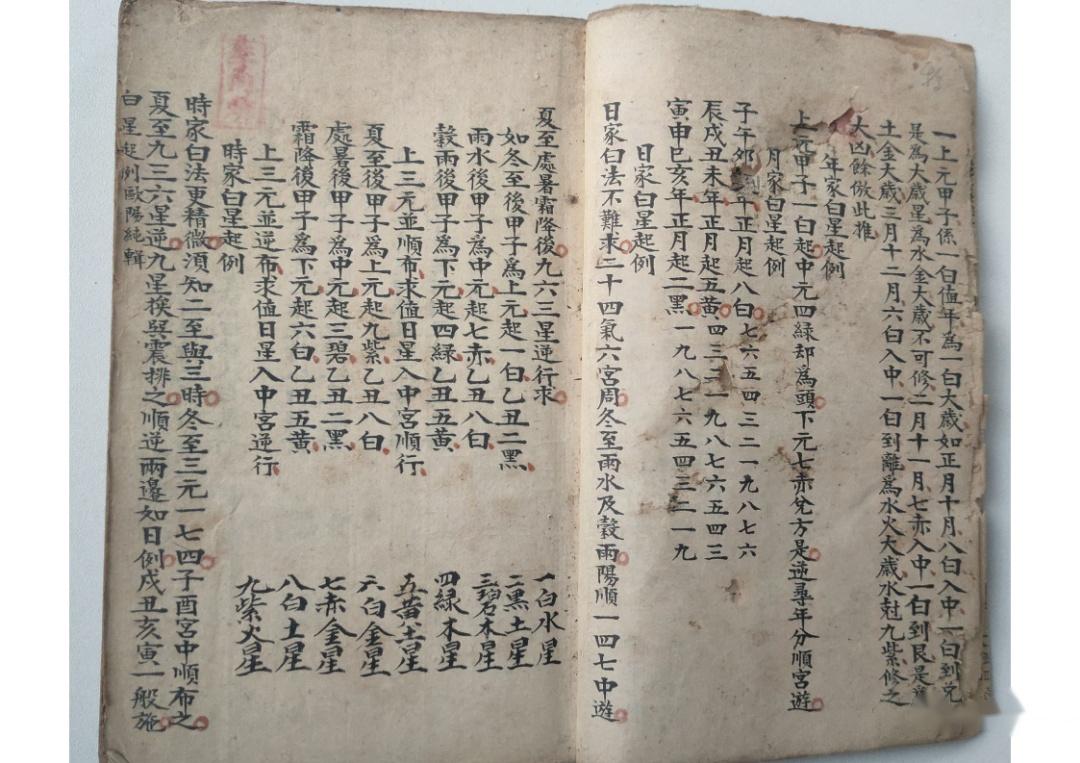 一上元甲子係一白值年為一白大歲如正月十月八白入中一白到兌
是為大歲星為水金大歲不可修二月十一月七赤入中一白到艮是
土金大歲三月十二月六白入中一白到離為水火大歲水尅九紫修之
大凶餘倣此推
年家白星起例
上元甲子一白起中元四緑却為頭下元七赤兌方是逆尋年分順宮遊
月家白星起例
子午卯年正月起八白七六五四三二一九八七六
辰戌丑未年正月起五黄四三二一九八七六五四三
寅申巳亥年正月起二黑一九八七六五四三二一九
日家白星起例
日家白法不難求二十四氣六宮周冬至雨水及穀雨陽順一四七中遊
夏至處暑霜降後九六三星逆行求
如冬至後甲子為上元起一白乙丑二黑
雨水後甲子為中元起七赤乙丑八白
穀雨後甲子為下元起四緑乙丑五黄
上三元並順布求值日星入中宮順行
夏至後甲子為上元起九紫乙丑八白
處暑後甲子為中元起三碧乙丑二黑
霜降後甲子為下元起六白乙丑五黄
上三元並逆布求值日星入中宮逆行
一白水星
二黑土星
三碧木星
四緑木星
五黄土星
六白金星
七赤金星
八白土星
九紫火星
時家白星起例
時家白法更精微須知二至與三時冬至三元一七四子酉宮中順布之
夏至九三六星逆九星挨巽震排之順逆兩邊如日例戌丑亥寅一般施
白星起例歐陽純輯